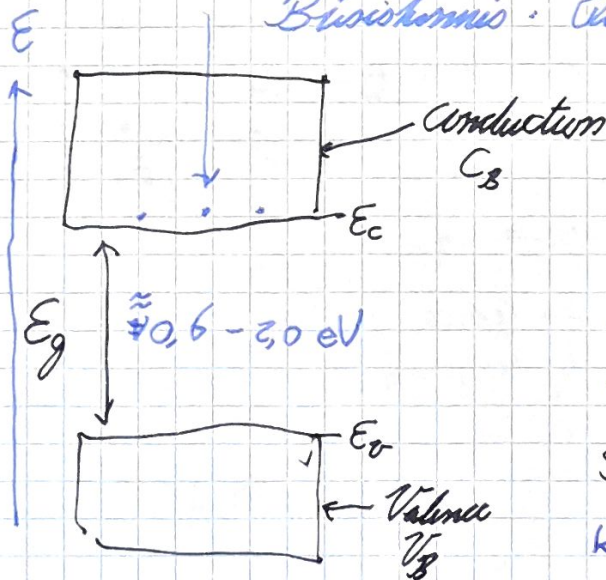 E
conduction
C_B
E_c
E_g
≈ 0,6 - 2,0 eV
E_v
Valence
V_B